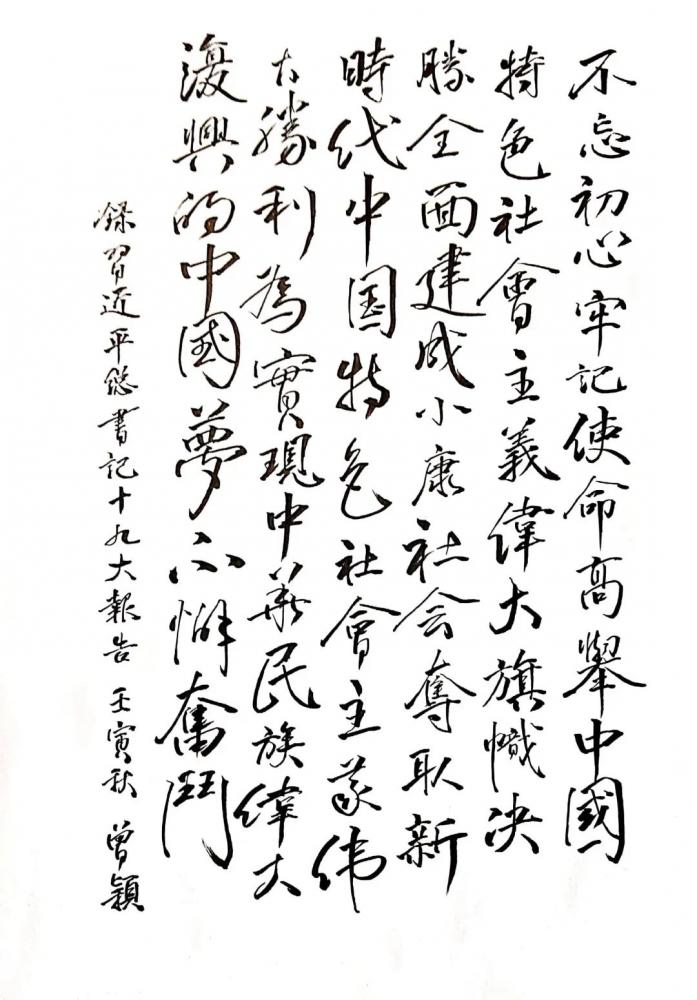 不忘初心牢记使命高舉中國
特色社會主義偉大旗幟决
勝全面建成小康社会奪取新
時代中国特色社會主義伟
大勝利為實現中華民族偉大
復興的中國夢不懈奮鬥
錄習近平總書記十九大報告 壬寅秋 曾穎